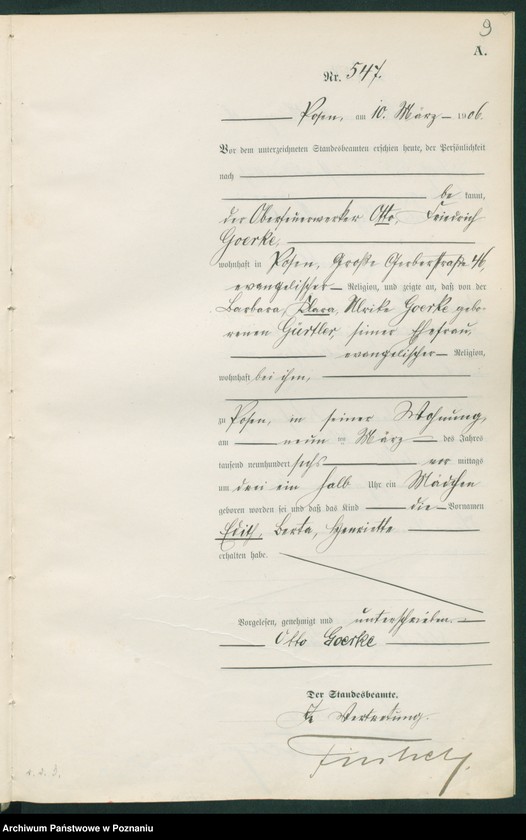 9
A.
Nr. 547.
Posen, am 10. März 1906.
Vor dem unterzeichneten Standesbeamten erschien heute, der Persönlichkeit
nach
be kannt,
der Oberfeuerwerker Otto, Friedrich
Goerke,
wohnhaft in Posen, Große Gerberstraße 46,
evangelischer Religion, und zeigte an, daß von der
Barbara, Klara, Ulrike Goerke gebo-
renen Gürtler, seiner Ehefrau,
evangelischer Religion,
wohnhaft bei ihm,
zu Posen, in seiner Wohnung,
am neun ten März des Jahres
tausend neunhundert sechs vor mittags
um drei ein halb Uhr ein Mädchen
geboren worden sei und daß das Kind die Vornamen
Edith, Berta, Henriette
erhalten habe.
Vorgelesen, genehmigt und unterschrieben.
Otto Goerke
Der Standesbeamte.
In Vertretung.
Archiwum Państwowe w Poznaniu